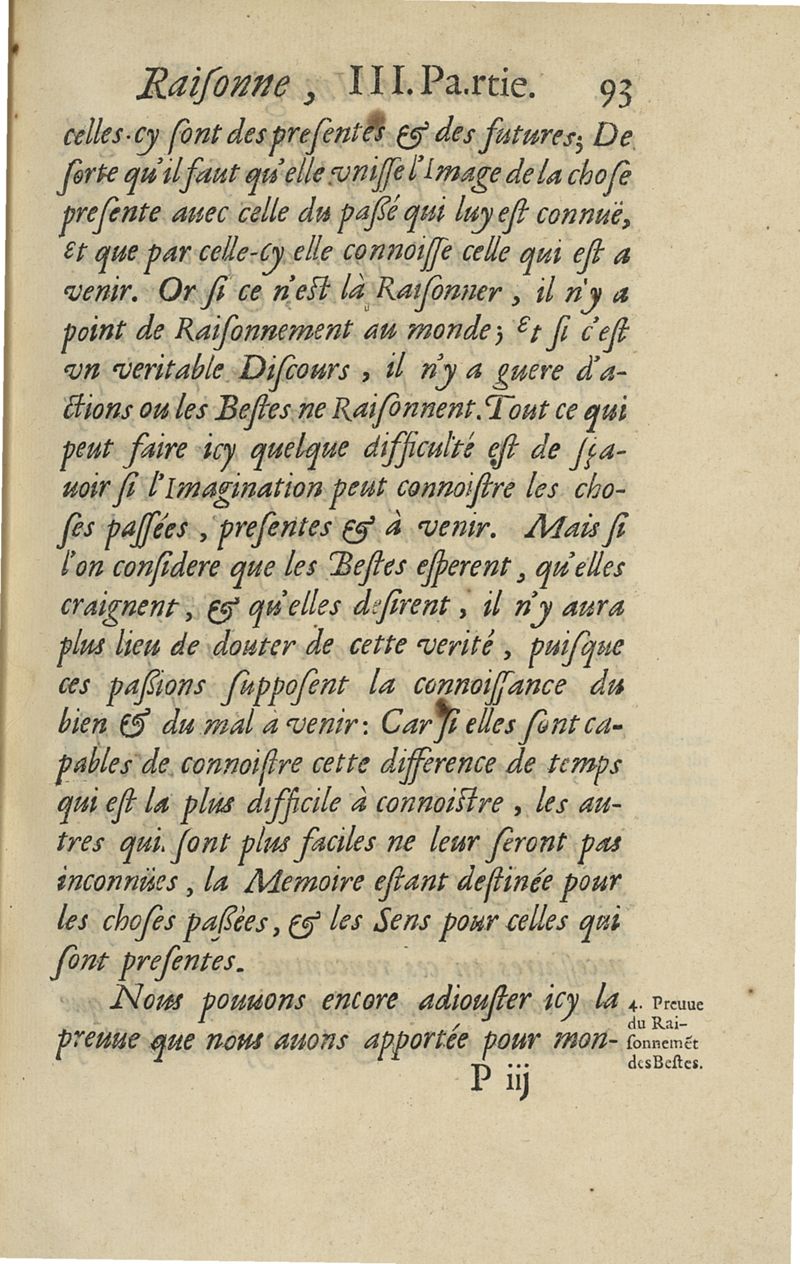 Raiſonne, III. Pa.rtie. 93
celles-cy ſont des preſentes & des futures; De
ſorte qu'il faut qu'elle vniſſe l'Image de la choſe
preſente auec celle du paßé qui luy eſt connuë,
Et que par celle-Cy elle connoiſſe celle qui eſt a
venir. Or ſi ce n'eſt là Raiſonner, il n'y a
point de Raiſonnement au monde; Et ſi c'eſt
vn veritable Diſcours, il n'y a guere d'a-
ctions ou les Beſtes ne Raiſonnent. Tout ce qui
peut faire icy quelque difficulté eſt de ſça-
uoir ſi l'Imagination peut connoiſtre les cho-
ſes paſſées, preſentes & à venir. Mais ſi
l'on conſidere que les Beſtes eſperent, qu'elles
craignent, & qu'elles deſirent, il n'y aura
plus lieu de douter de cette verité, puiſque
ces paßions ſuppoſent la connoiſſance du
bien & du mal à venir: Car ſi elles ſont ca-
pables de connoiſtre cette difference de temps
qui eſt la plus difficile à connoiſtre, les au-
tres qui. ſont plus faciles ne leur ſeront pas
inconnües, la Memoire eſtant deſtinée pour
les choſes paßèes, & les Sens pour celles qui
ſont preſentes.
Nous pouuons encore adiouſter icy la
preuue que nous auons apportée pour mon-
4. Preuue
du Rai-
ſonnemẽt
des Beſtes.
P iij